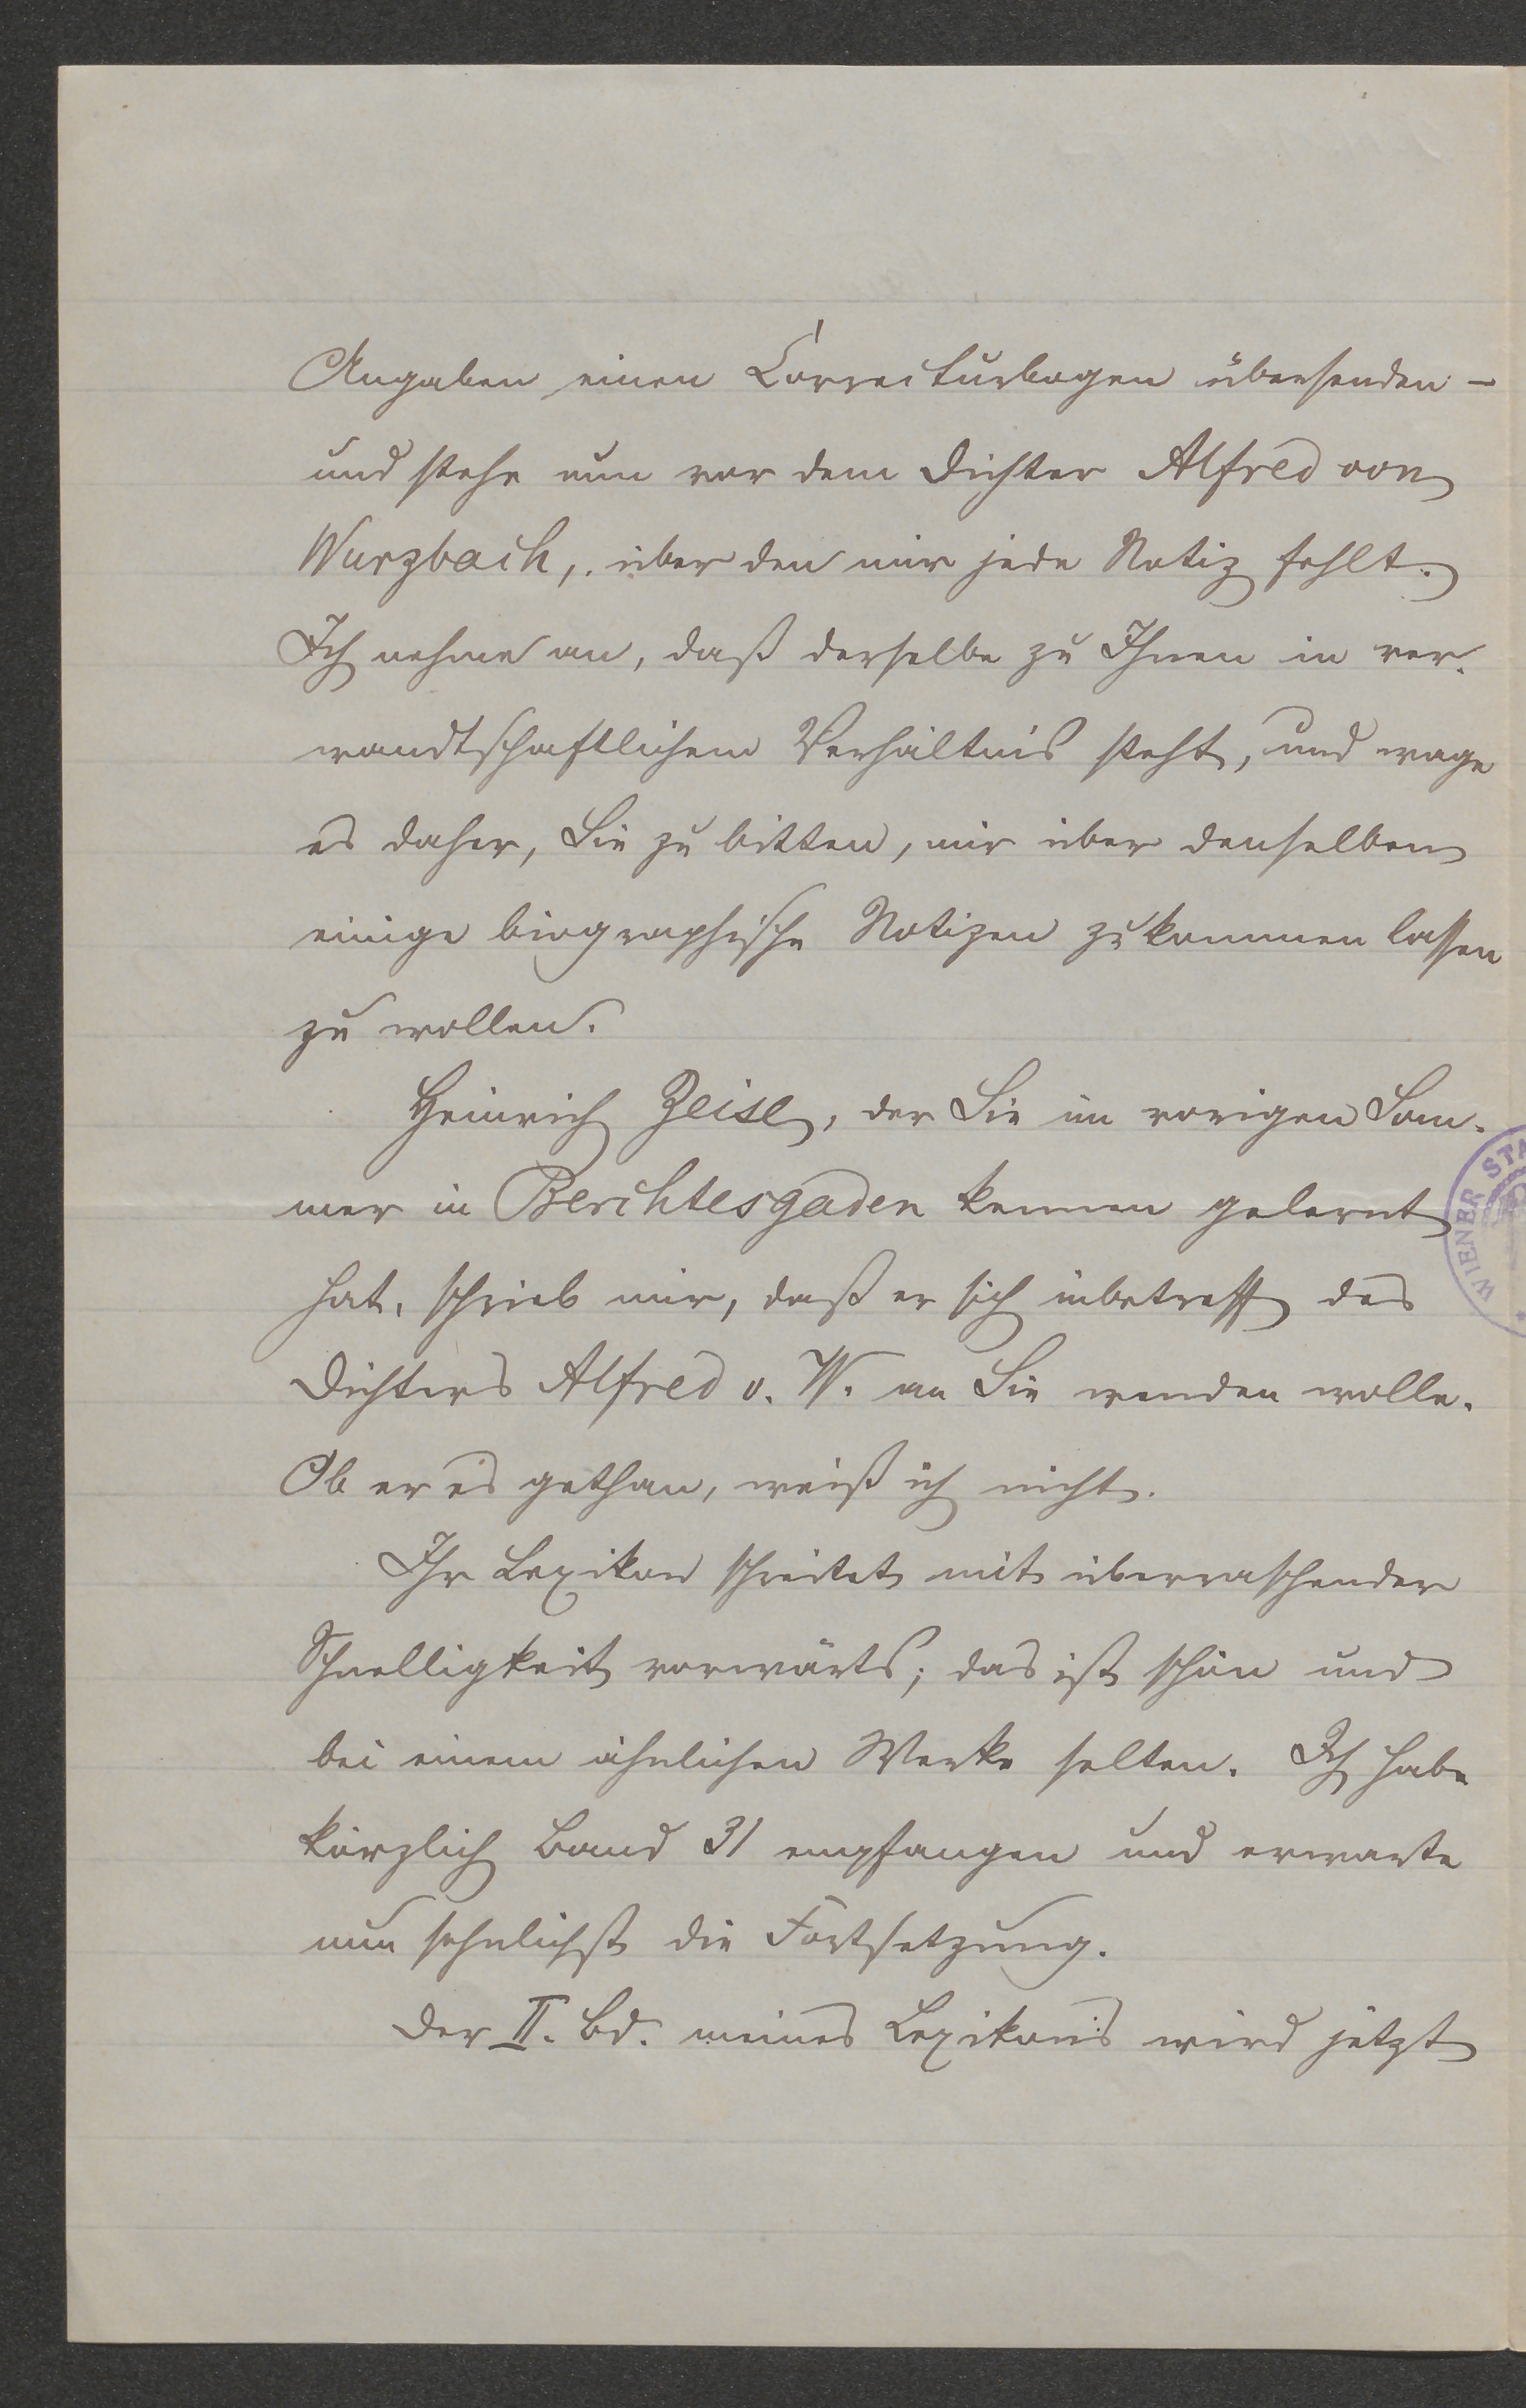 Angaben einen Correcturbogen übersenden –
und stehe nun vor dem Dichter Alfred von
Wurzbach, über den mir jede Notiz fehlt.
Ich nehme an, daß derselbe zu Ihnen in ver-
wandtschaftlichem Verhältnis steht, und wage
es daher, Sie zu bitten, mir über denselben
einige biographische Notizen zukommen lassen
zu wollen.
Heinrich Zeise, der Sie im vorigen Som-
mer in Berchtesgaden kennen gelernt
hat, schrieb mir, daß er sich inbetreff des
Dichters Alfred v. W. an Sie wenden wolle.
Ob er es gethan, weiß ich nicht.
Ihr Lexikon schreitet mit überraschender
Schnelligkeit vorwärts; das ist schön und
bei einem ähnlichen Werke selten. Ich habe
kürzlich Band 31 empfangen und erwarte
nun sehnlichst die Fortsetzung.
Der II. Bd. meines Lexikons wird jetzt
WIENER STA